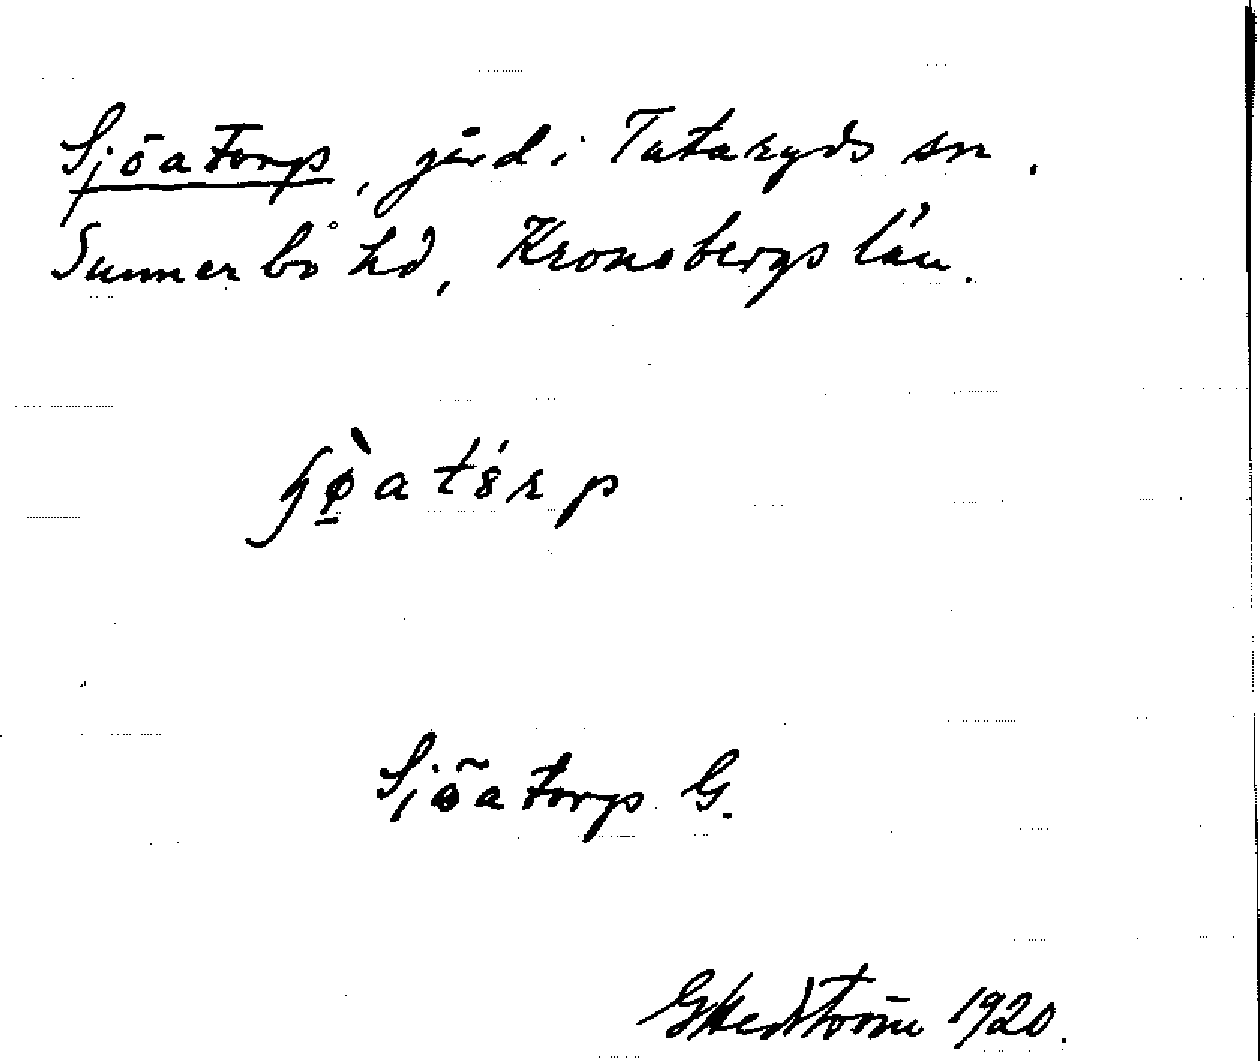 Sjöatorp, gård i Tutaryds sn.
Sunnerbo hd, Kronobergs län.
ʃø̀atɵ́rp
Sjöatorp G.
G Hedström 1920.